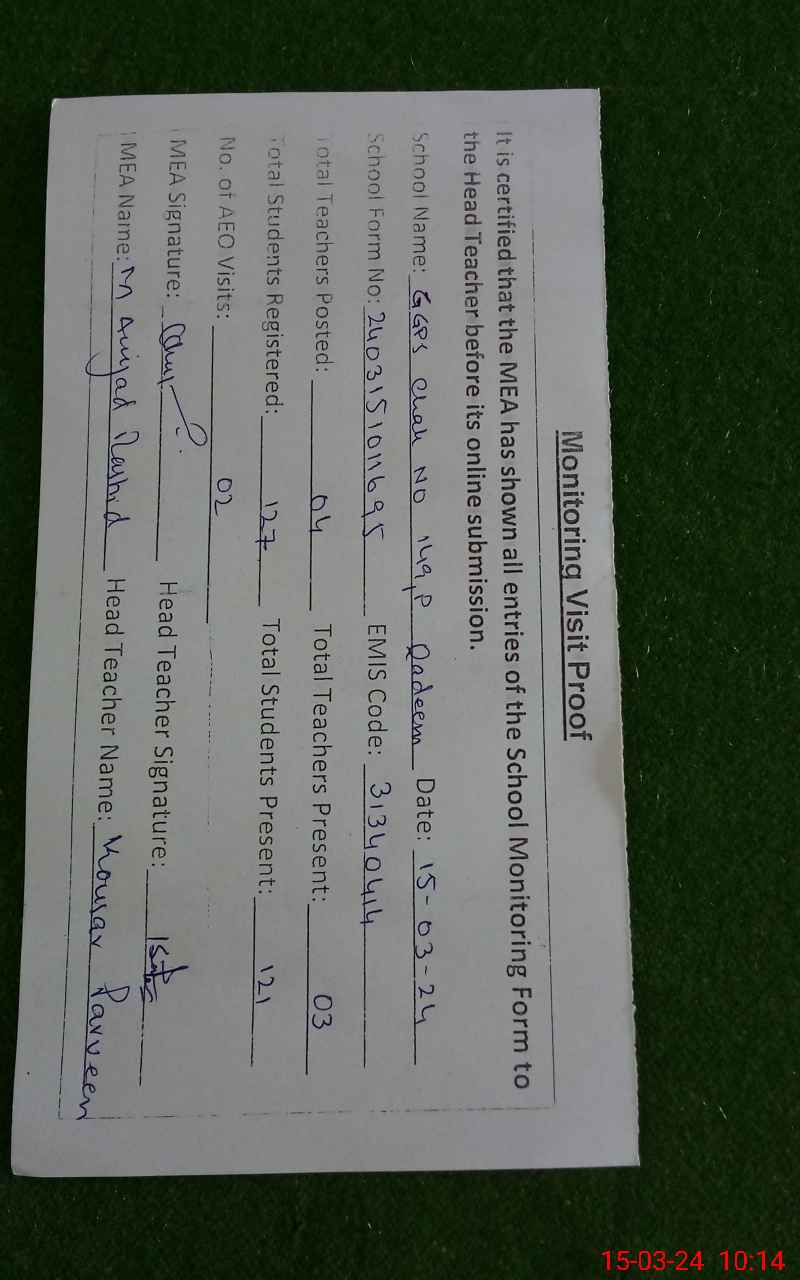 Monitoring Visit Proof
It is certified that the MEA has shown all entries of the School Monitoring Form to
the Head Teacher before its online submission.
School Name: GGPS Chak NO 149,P Qadeem Date: 15-03-24
School Form No: 240315101169 5 EMIS Code: 31340414
Total Teachers Posted: 04 Total Teachers Present: 03
Total Students Registered: 127 Total Students Present: 121
No. of AEO Visits: 02
MEA Signature: Head Teacher Signature:
MEA Name: M Amjad Rashid Head Teacher Name: Kousar Parveen
15-03-24 10:14